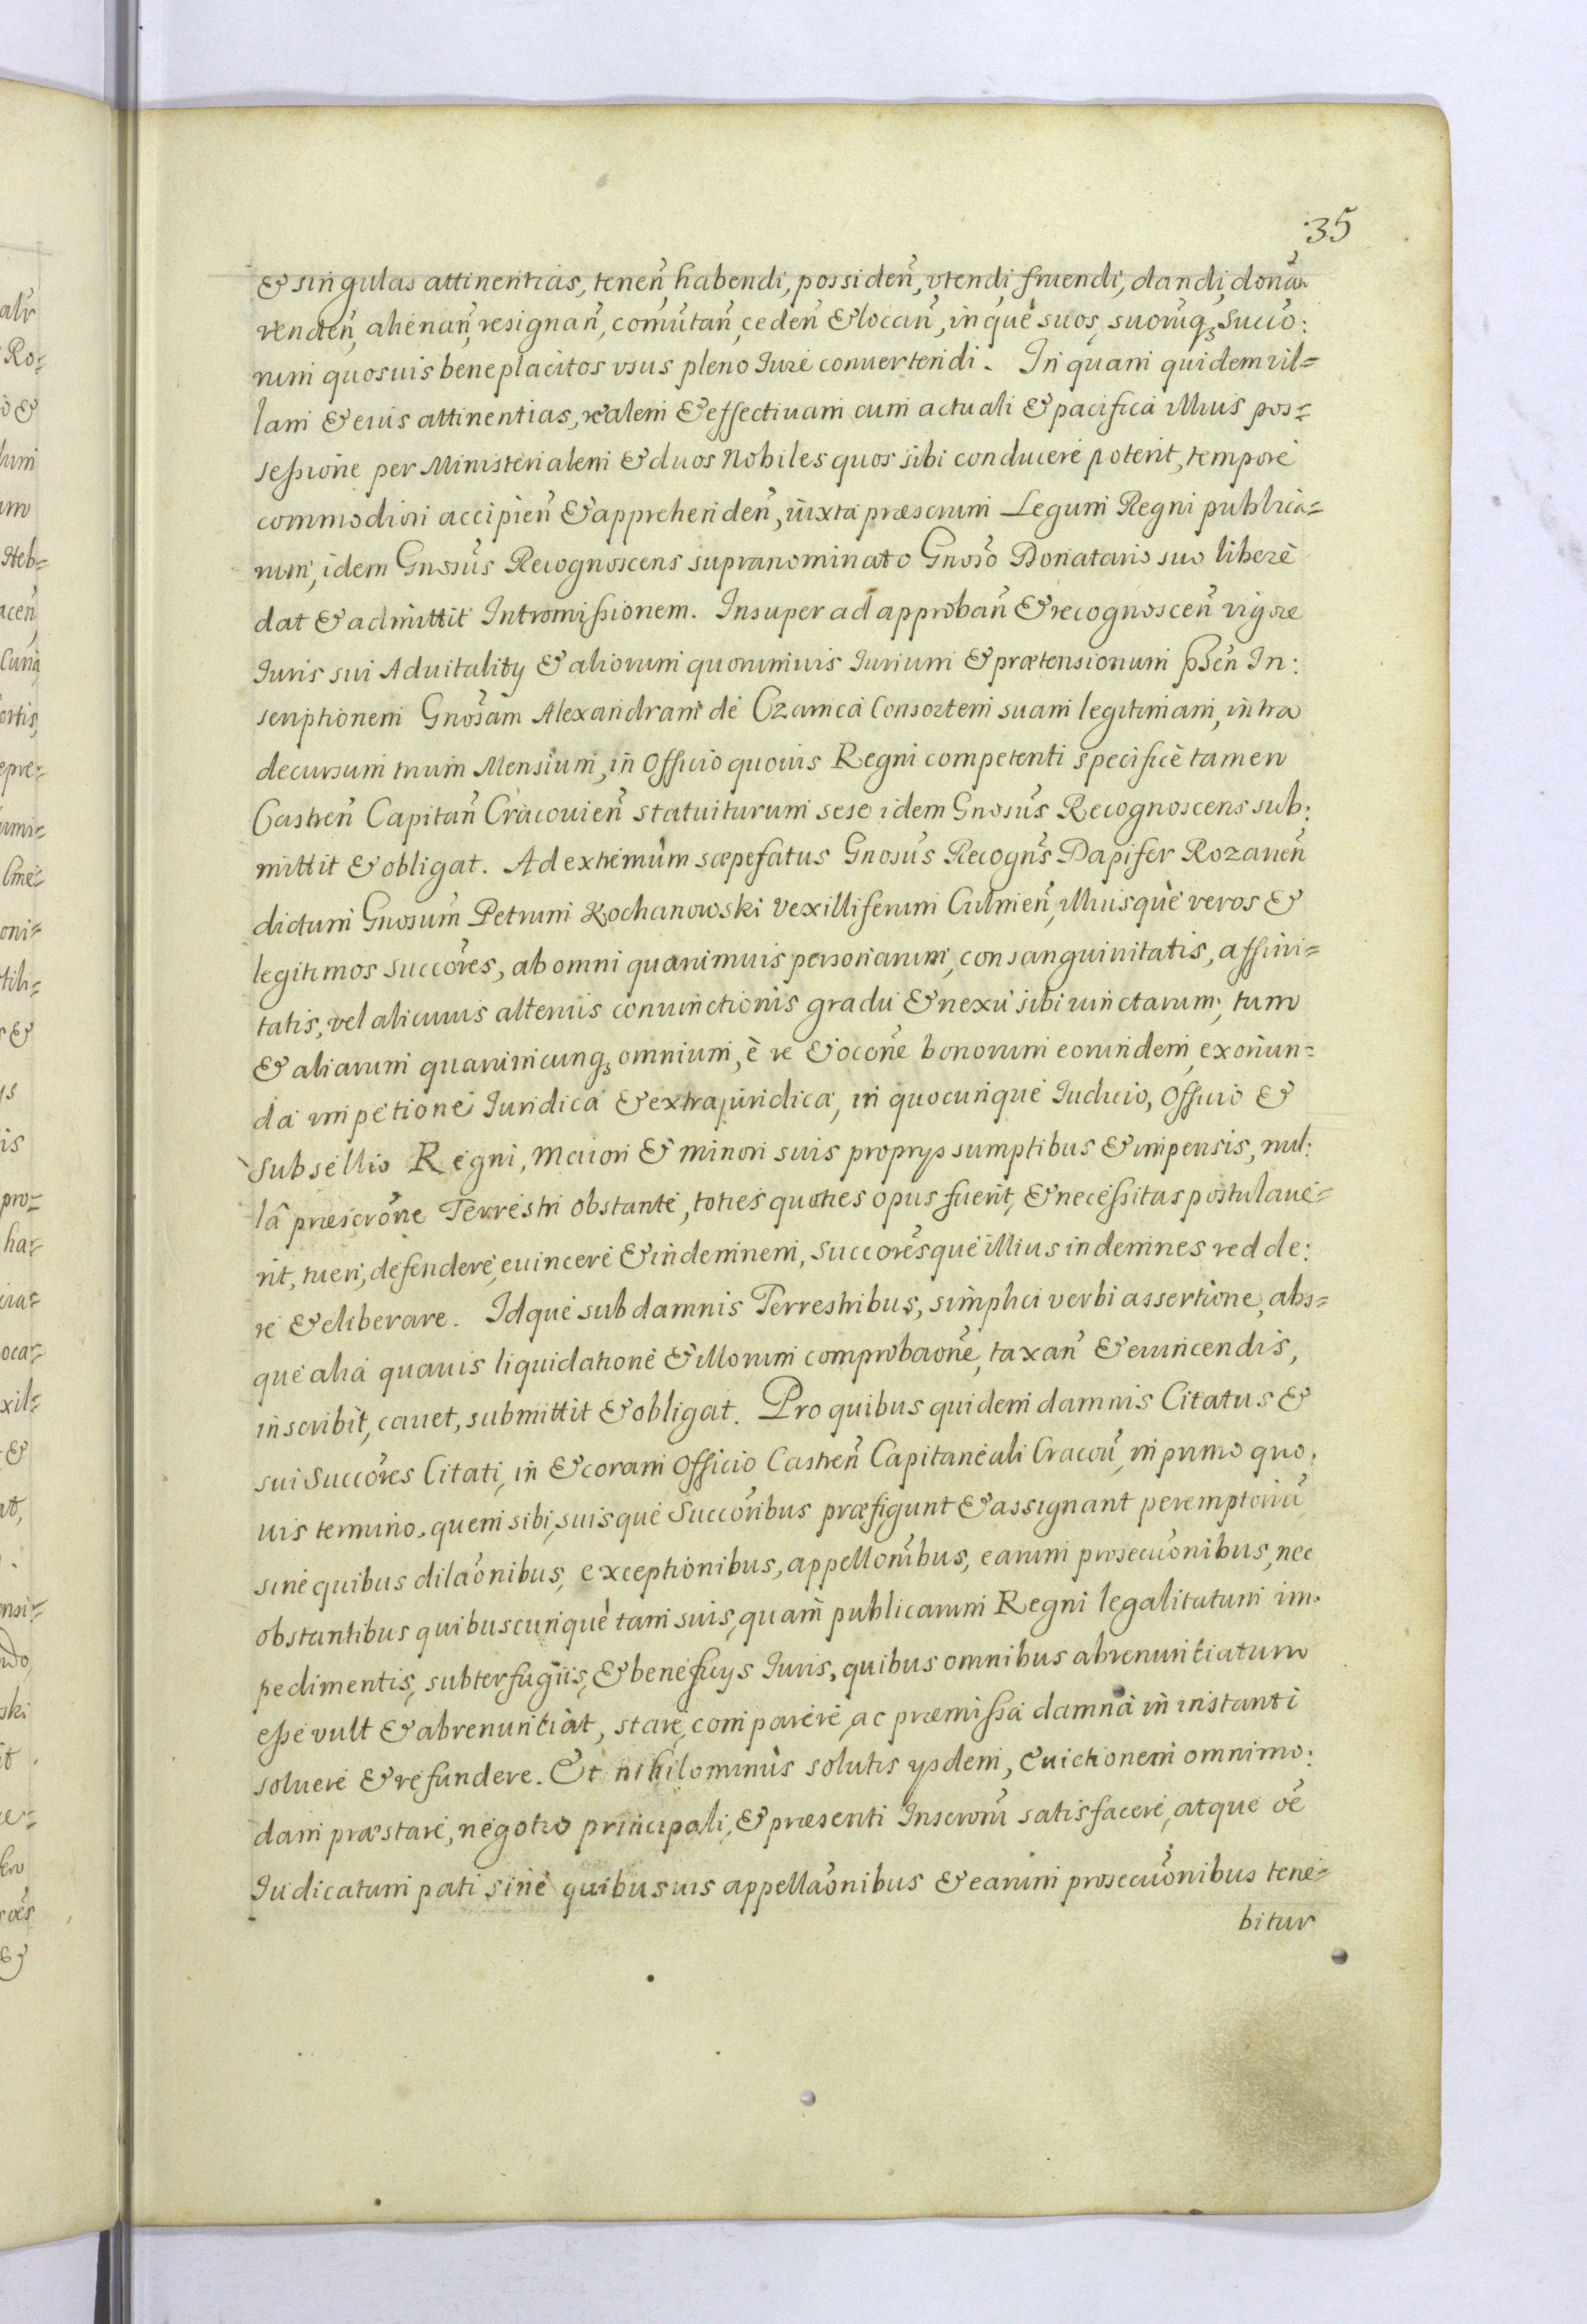 35
& singulas attinentias, tenen̄, habendi, possiden̄, vtendi, fruendi, dandi, donan̄
venden̄, alienan̄, resignan̄, com̄utan̄, ceden̄ & locan̄, inquè suos, suorumq₃ Succo:
rum quosuis beneplacitos vsus pleno Iure conuertendi. In quam quidem vil=
lam & eius attinentias, realem & effectiuam cum actuali & pacifica illius pos=
sessione per Ministerialem & duos Nobiles quos sibi conducere poterit, tempore
commodiori accipien̄ & apprehenden̄, iuxta præscrium Legum Regni publica=
rum, idem Gnosus Recognoscens supranominato Gnoso Donatario suo liberè
dat & admittit Intromissionem. Insuper ad approban̄ & recognoscen̄ vigore
Iuris sui Aduitalitÿ & aliorum quorumuis Iurium & prætensionum p̄sen̄ In:
scriptionem Gnosam Alexandram de Czarnca Consortem suam legitimam, intra
decursum trium Mensium, in Officio quouis Regni competenti specificè tamen
Castren̄ Capitan̄ Cracouien̄ statuiturum sese idem Gnosus Recognoscens sub:
mittit & obligat. Ad extremùm sæpefatus Gnosus Recogn̄s Dapifer Rozanen̄
dictum Gnosum Petrum Kochanowski Vexilliferum Culmen̄, illiusquè veros &
legitimos Succōres, ab omni quarumuis personarum, consanguinitatis, affini=
tatis, vel alicuius alterius coniunctionis gradu & nexu sibi iunctarum, tum
& aliarum quarumcunq₃ omnium, è re & ōccōne bonorum eorundem, exoriun=
da impetione Iuridica & extraiuridica, in quocunque Iudicio, Officio &
Subsellio Regni, maiori & minori suis proprÿs sumptibus & impensis, nul:
lâ præscrōne Terrestri obstante, toties quoties opus fuerit, & necessitas postulaue=
rit, tueri, defendere, euincere & indemnem, Succōresque illius indemnes redde:
re & eliberare. Idque sub damnis Terrestribus, simplici verbi assertione, abs=
que alia quauis liquidatione & illorum comprobaōne, taxan̄ & euincendis,
inscribit, cauet, submittit & obligat. Pro quibus quidem damnis Citatus &
sui Succōres Citati, in & coram Officio Castren̄ Capitaneali Cracou̅, in primo quo:
uis termino, quem sibi, suisque Succōribus præfigunt & assignant peremptoriū,
sine quibus dilaōnibus, exceptionibus, appellōnibus, earum prosecuōnibus, nec
obstantibus quibuscunquè tam suis, quam publicarum Regni legalitatum im:
pedimentis, subterfugiis, & beneficÿs Iuris, quibus omnibus abrenuntiatum
esse vult & abrenuntiat, stare, comparere, ac præmissa damna in instanti
soluere & refundere. Et nihilominùs solutis ÿsdem, Euictionem omnimo:
dam præstare, negotio principali, & præsenti Inscrōni satisfacere, atque ōe
Iudicatum pati sine quibusuis appellaōnibus & earum prosecuōnibus tene=
bitur